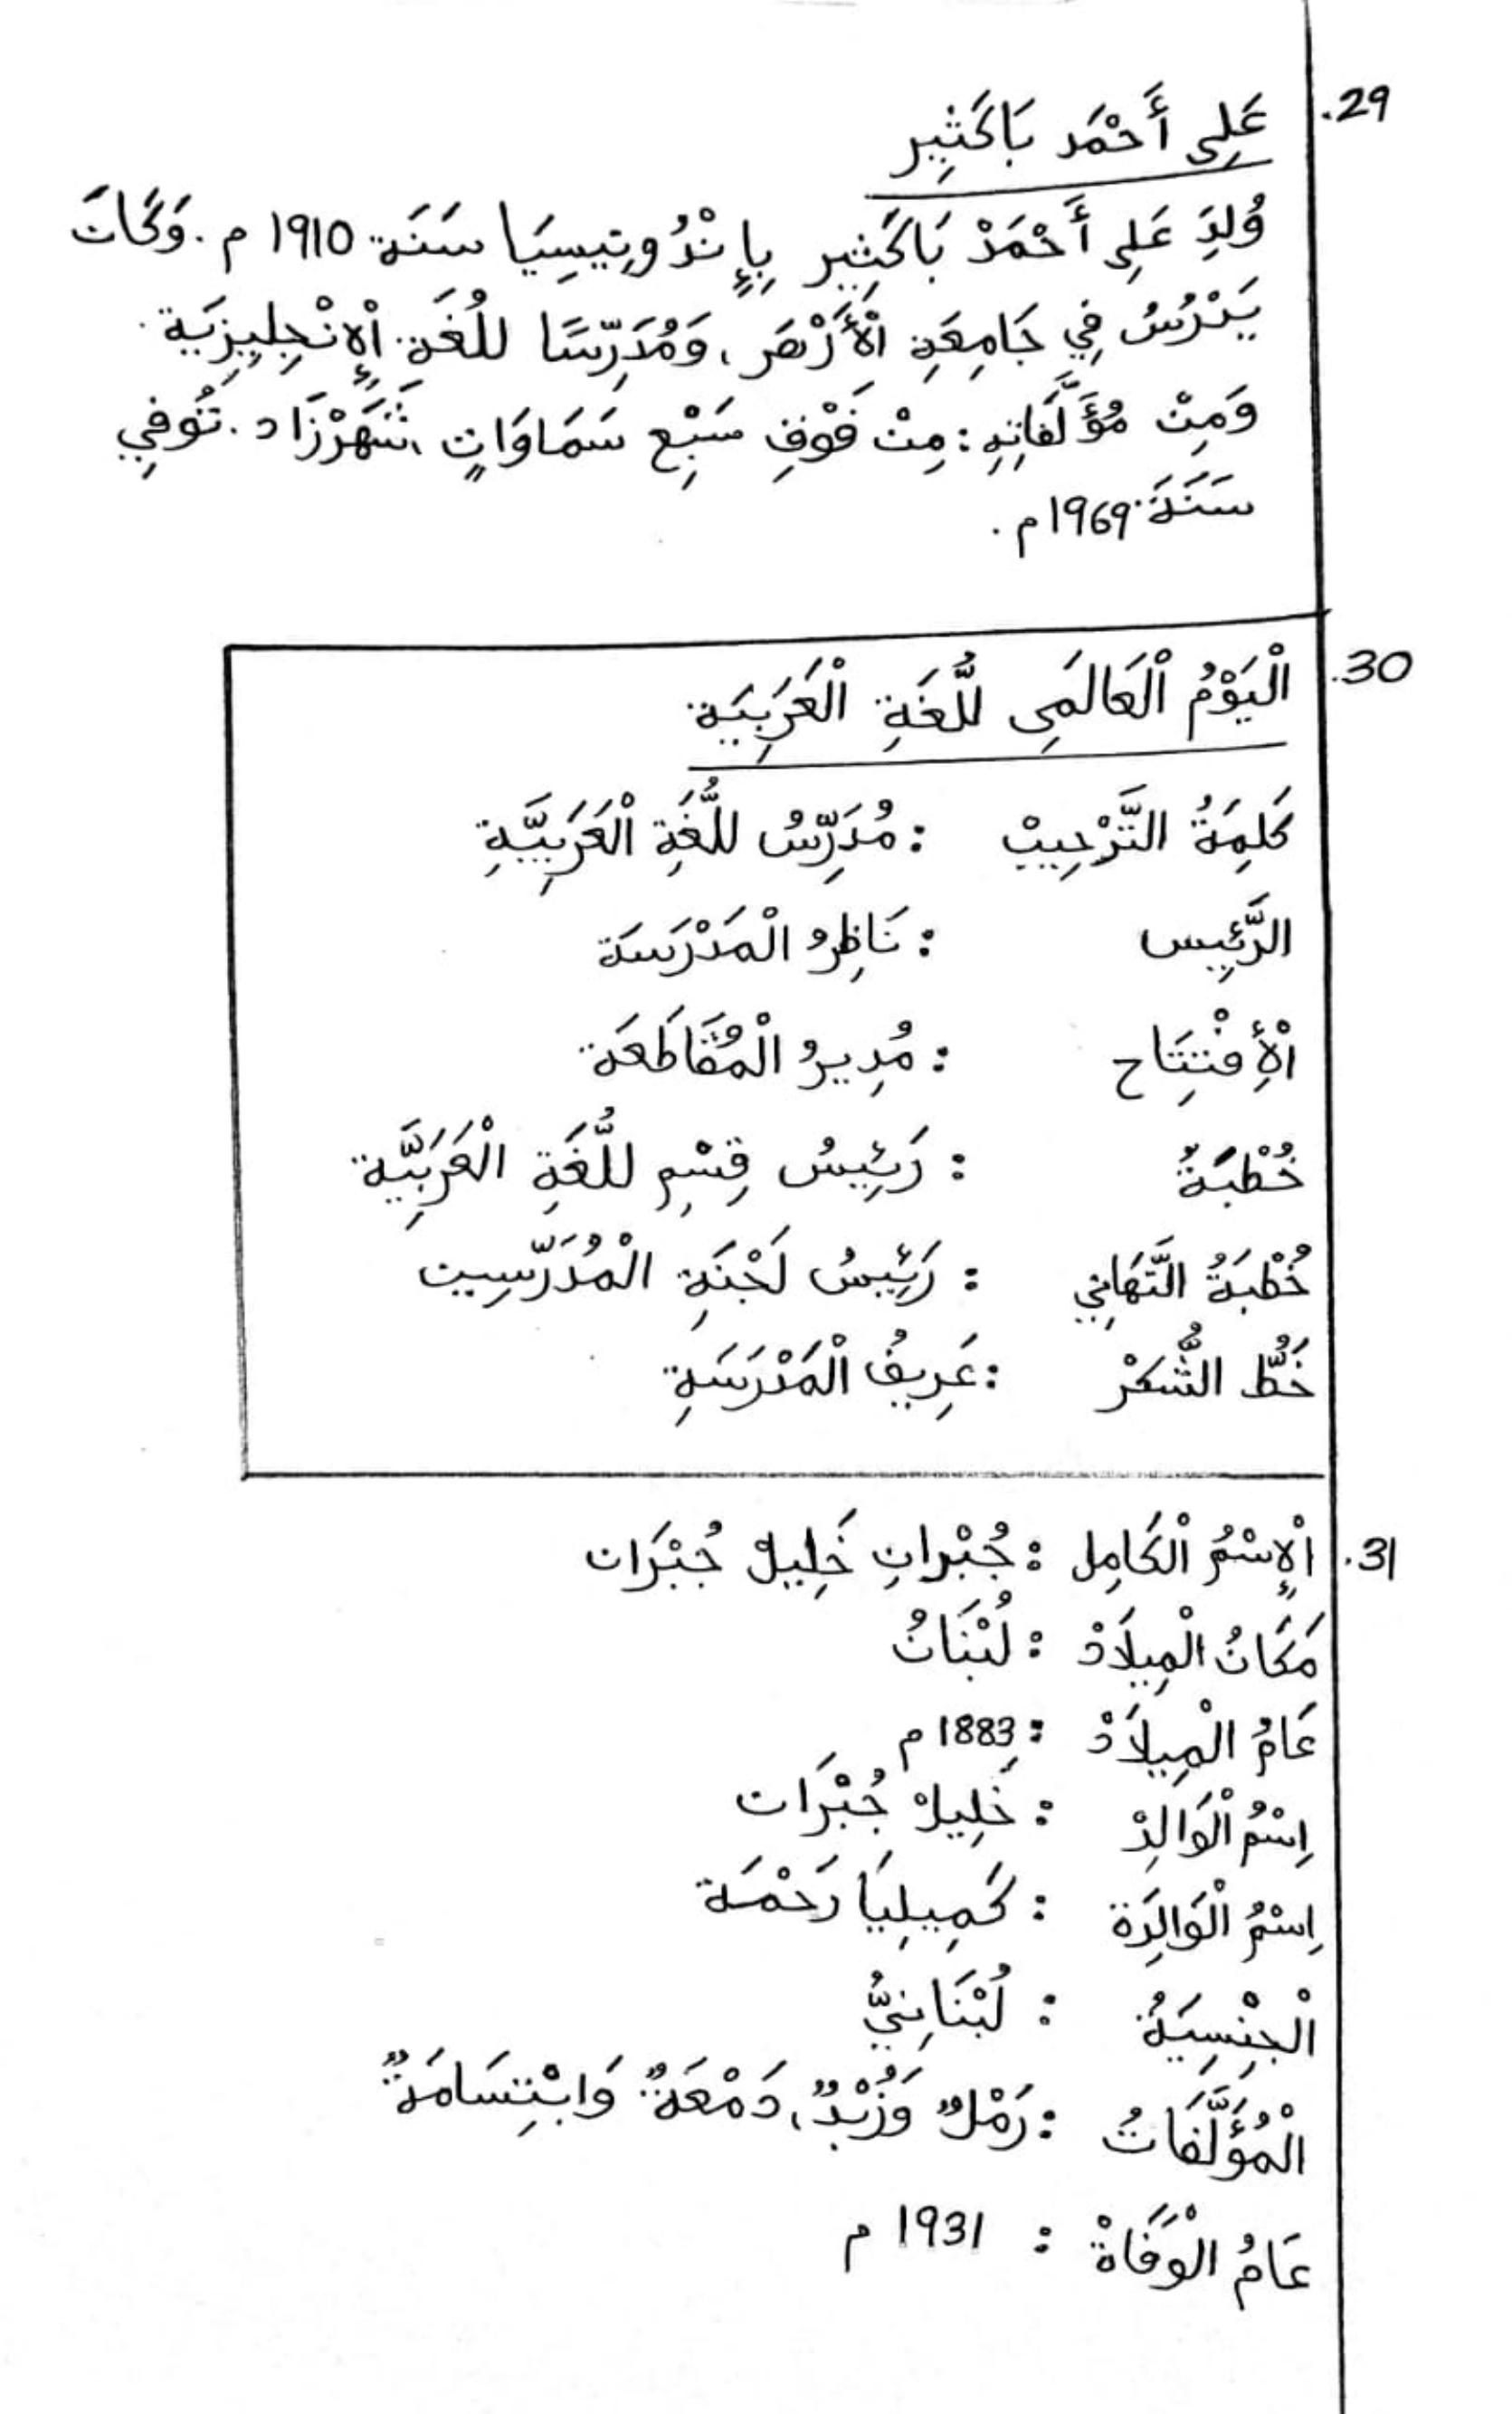 29. عَلِي أَحْمَد بَاكَثِير
وُلِدَ عَلِي أَحْمَدْ بَاكَثِير بِإِنْدُونِيسِيَا سَنَة 1910 م. وَكَانَ
يَدْرُسُ فِي جَامِعَةِ اْلأَزْهَر، وَمُدَرِّسًا للُغَة اْلإِنْجِلِيزِيَة.
وَمِنْ مُؤَلَّفَاتِهِ: مِنْ فَوْقِ سَبْعِ سَمَاوَاتٍ، شَهَرْزَاد. تُوفِي
سَنَةَ 1969 م.
30. الْيَوْمُ اْلعَالَمِى للُّغَةِ الْعَرَبِيَة
كَلِمَةُ التَّرْحِيبْ : مُدَرِّسُ للُّغَةِ الْعَرَبِيَّةِ
الرَّئِيس : نَاظِرُ الْمَدْرَسَة
اْلأِفْتِتَاح : مُدِيرُ الْمُقَاطَعَة
خُطْبَةُ : رَئِيسُ قِسْمِ للُّغَةِ الْعَرَبِيَّة
خُطْبَةُ التَّهَانِي : رَئِيسُ لَجْنَةِ الْمُدَرِّسِين
خَطُّ الشُّكْرْ : عَرِيفُ الْمَدْرَسَةِ
31. اْلإِسْمُ اْلكَامِل : جُبْرانِ خَلِيلْ جُبْرَان
مَكَانُ الْمِيلَادْ : لُبْنَانُ
عَامُ الْمِيلَادْ : 1883 م
اِسْمُ اْلوَالِدْ : خَلِيلْ جُبْرَان
اِسْمُ الْوَالِدَة : كَمِيلِيَا رَحْمَة
الْجِنْسِيَةُ : لُبْنَانِيُّ
الْمُؤَلَّفَاتُ : رَمْلٌ وَزُبْدٌ، دَمْعَةٌ وَابْتِسَامَةٌ
عَامُ الْوَفَاةْ : 1931 م